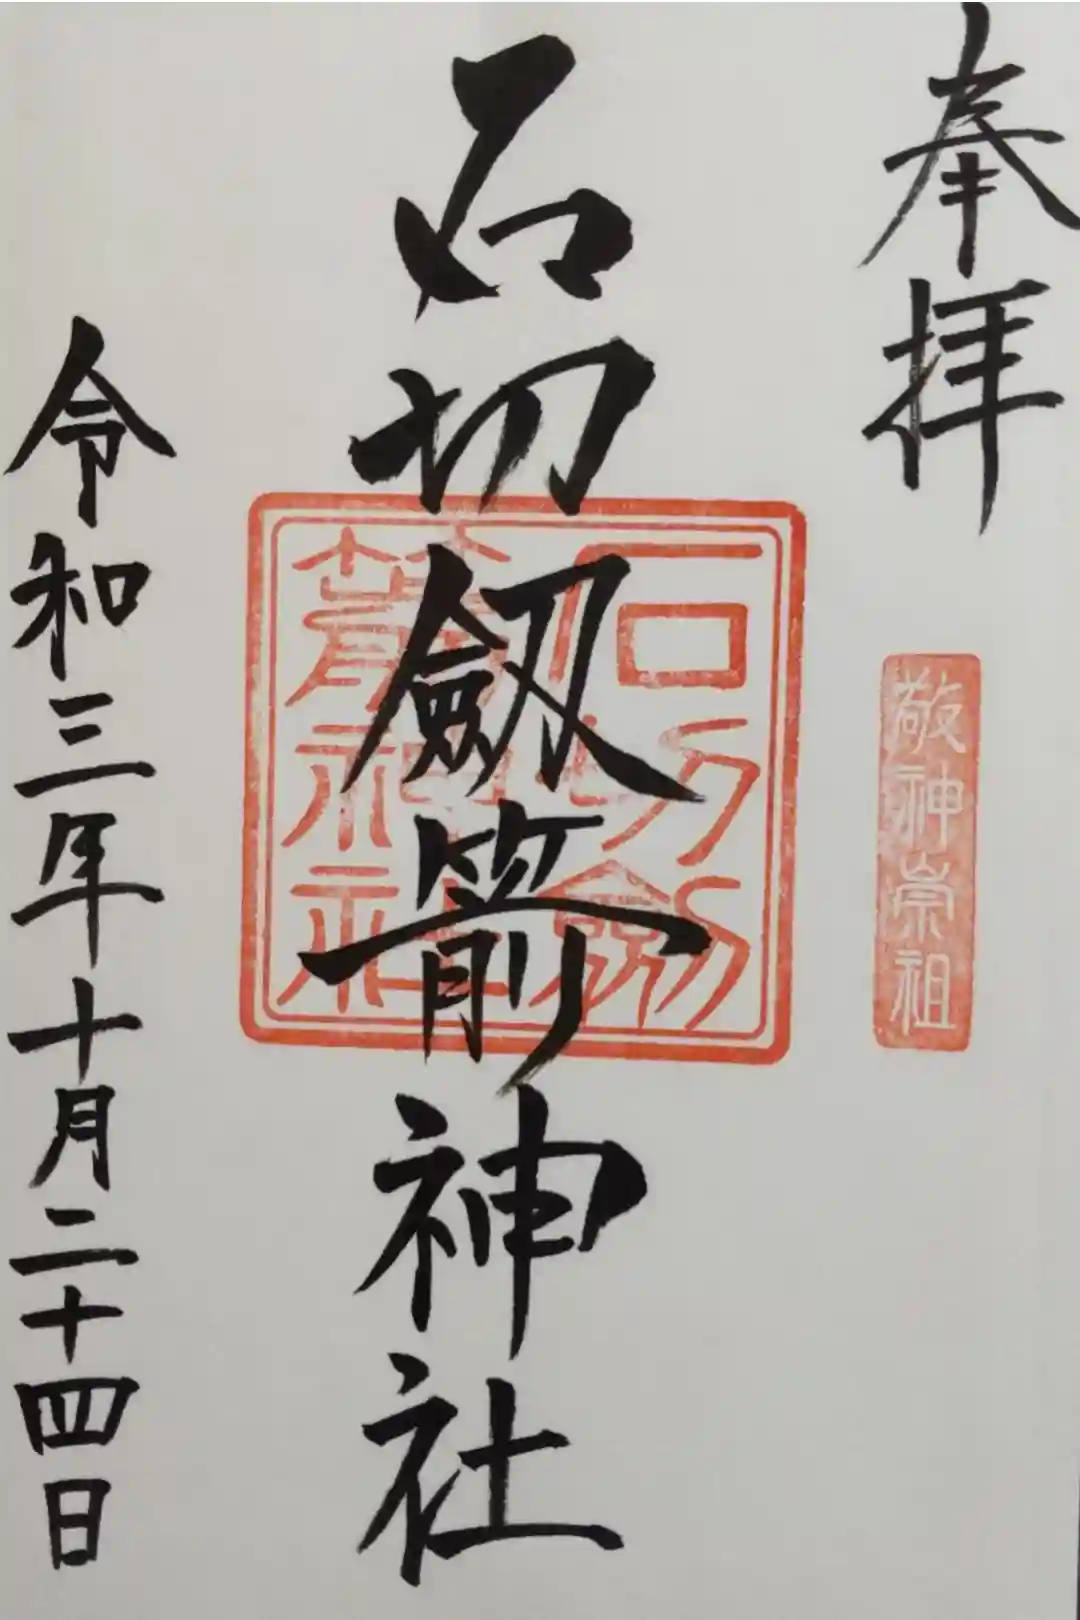 奉拝
敬神崇祖
石切劔箭神社
石切劔
箭神社
令和三年十月二十四日